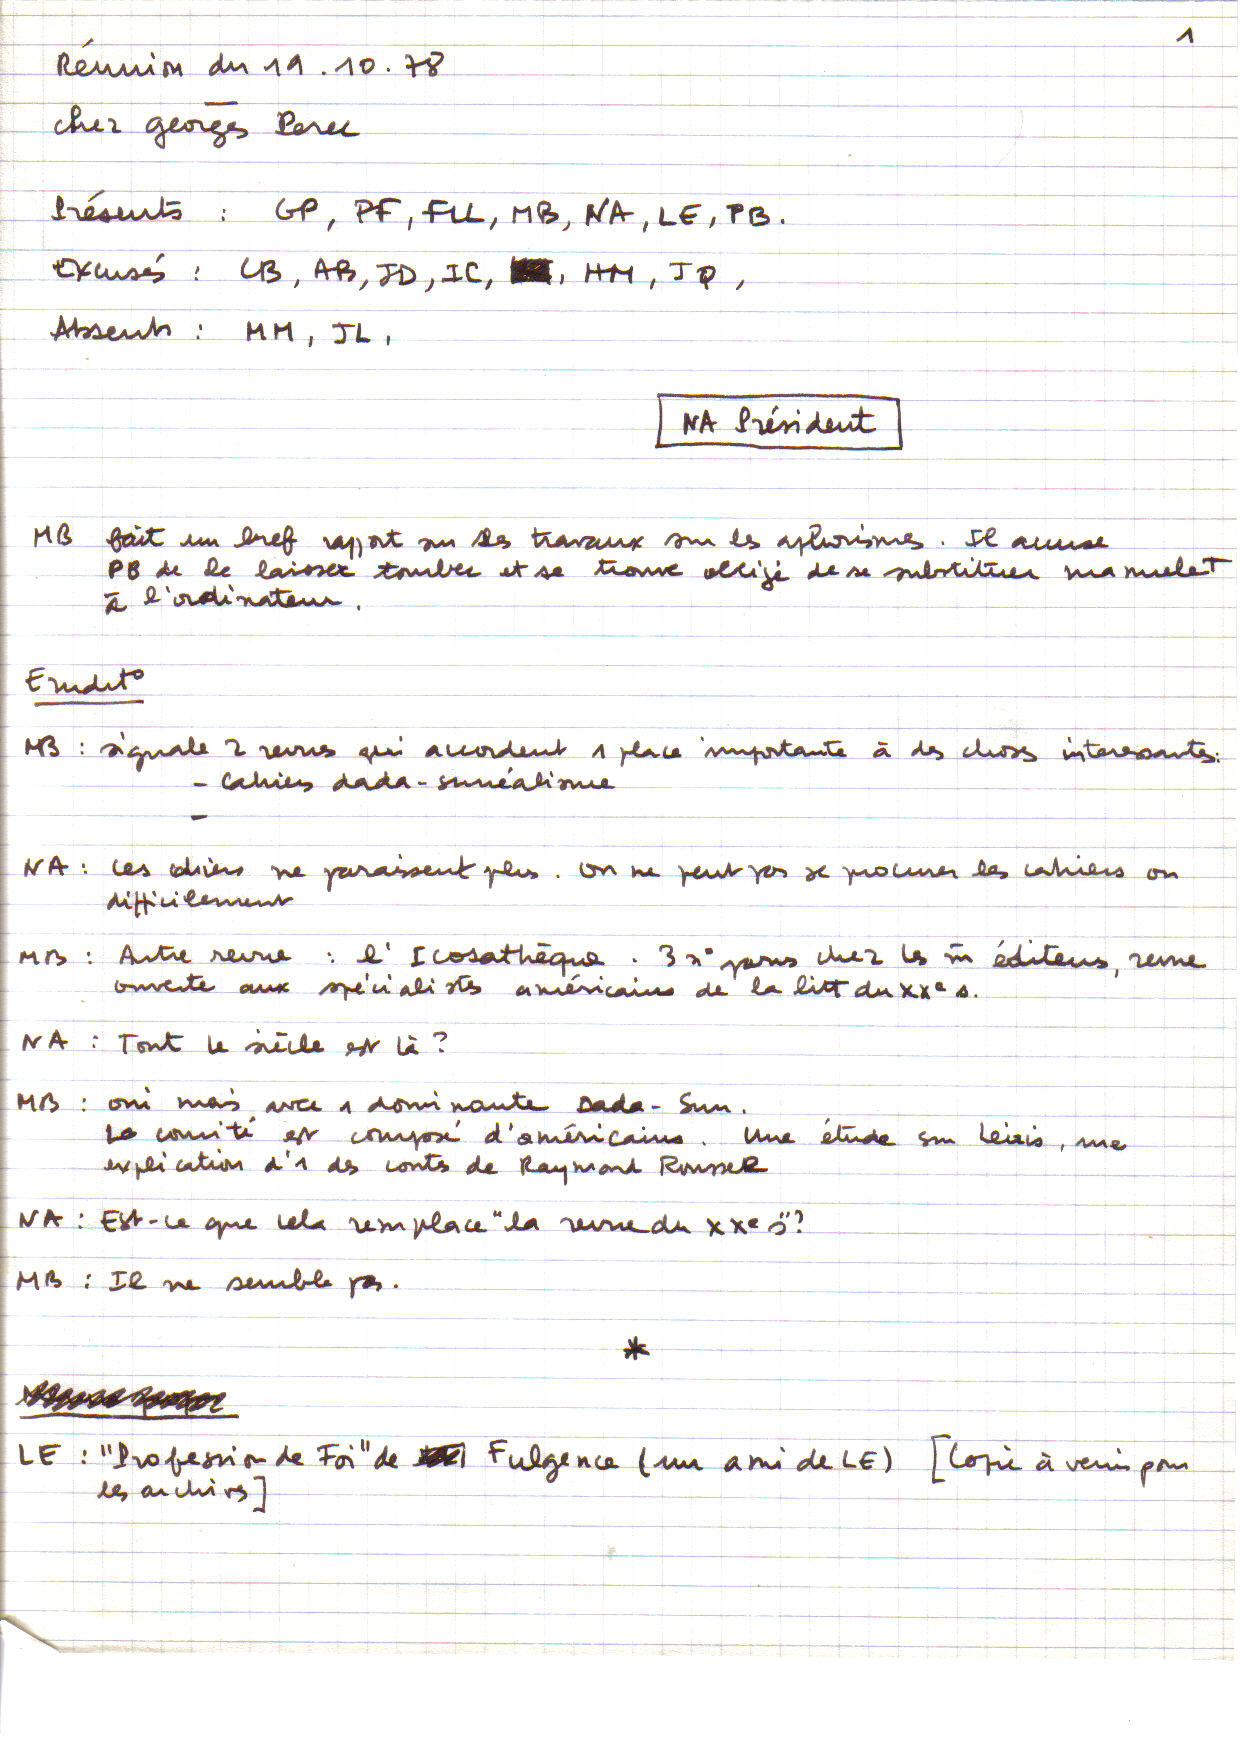 1
Réunion du 19.10.78
chez georges Perec
Présents : GP, PF, FLL, MB, NA, LE, PB.
Excusés : CB, AB, JD, IC, HM, JQ,
Absents : MM, JL,
NA Président
MB fait un bref rapport sur les travaux sur les aphorismes. Il accuse
PB de le laisser tomber et se trouve obligé de se substituer manuelt
à l'ordinateur.
Erudit°
MB : signale 2 revues qui accordent 1 place importante à des choses interessantes:
- Cahiers dada-surréalisme
-
NA : Ces cahiers ne paraissent plus. On ne peut pas se procurer les cahiers ou
difficilement
MB : Autre revue : l'Icosathèque. 3 n° parus chez les m̄ éditeurs, revue
ouverte aux spécialistes américains de la litt du XXe s.
NA : Tout le siècle est là ?
MB : oui mais avec 1 dominante Dada-Surr.
Le comité est composé d'américains. Une étude sur Leiris, une
explication d'1 des contes de Raymond Roussel
NA : Est-ce que cela remplace "la revue du XXe s"?
MB : Il ne semble pas.
*
LE : "Profession de Foi" de Fulgence (un ami de LE) [Copie à venir pour
les archives]